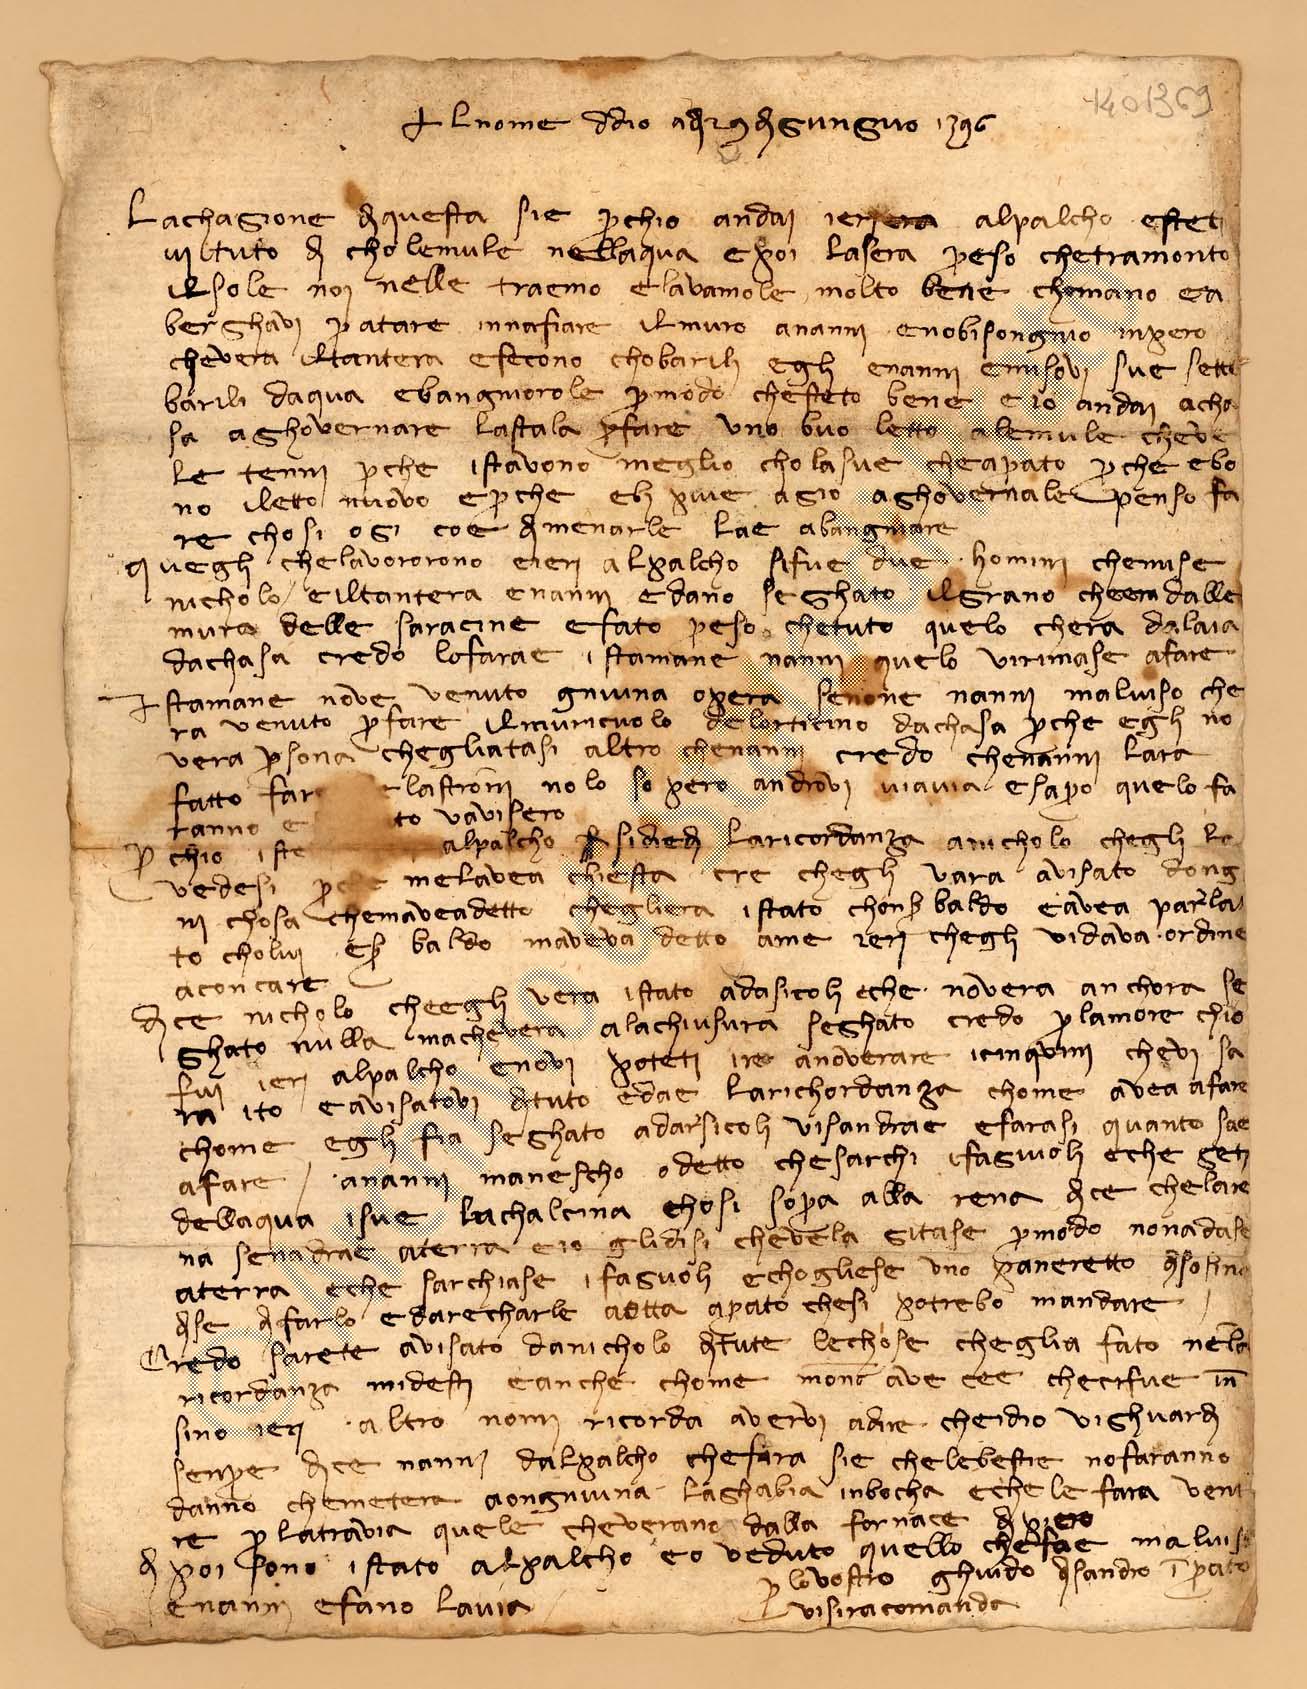 1401369
+ Lnome ddio adi 29 di gungnio 1396
Lachagione di questa sie perchio andai ierisera alpalcho estetti
vi tuto di cholemule nellaqua e poi lasera preso chetramonto
ilsole noi nelle traemo elavamole molto bene chomano ea
berghavi patare innafiare ilmuro ananni enobisongnio inpero
chevera iltantera efecono chobarili egli enanni emisovi sue sette
barili daqua ebangniorole permodo chesteto bene e io andai acha
sa aghovernare lastala perfare uno buo letto alemule cheve
le tenni perche istavono meglio cholasue cheapato perche ebo
no iletto nuovo eperche ebi piue agio aghovernale penso fa
re chosi ogi coe dimenarle lae abangniare
quegli chelavororono eieri alpalcho sifue due homini chemise
nicholo eiltantera enanni edano seghato ilgrano cheera dalle
mura delle saracine efato preso chetuto quelo chera dalaia
dachasa credo lofarae istamane nanni quelo virimase afare
Istamane nove venuto gniuna opera senone nanni malviso che
ra venuto perfare ilmuricuolo delorticino dachasa perche egli no
vera persona chegliatasi altro chenanni credo chenanni lara
fatto fare lastroni nolo so pero androvi viavia esapro quelo fa
ranno e to vavisero
Perchio iste alpalcho sidiedi laricordanza anicholo chegli la
vedesi perche melavea chiesta cre chegli vara avisato dongni
chosa chemaveadetto chegliera istato chonser baldo eavea parla
to cholui eser baldo maveva detto ame ieri chegli vidava ordine
aconcare
Dice nicholo cheegli vera istato adasicoli eche novera anchora se
ghato nulla machevera alachiusura seghato credo perlamore chio
fui ieri alpalcho enovi poteti ire anoverare icinquini chevi sa
ra ito eavisatovi dituto edae larichordanza chome avea afare
chome egli fia seghato adarsicoli visandrae efarasi quanto sae
afare ananni manescho odetto chesarchi ifagiuoli eche geti
dellaqua isue lachalcina echosi sopra alla rena dice chelare
na senadrae aterra eio glidisi chevela gitase permodo nonadase
aterra eche sarchiase ifagiuoli echogliese uno paneretto disosine
dise difarlo edarecharle aotta aprato chesi potrebo mandare
Credo sarete avisato danicholo ditute lechose cheglia fato nela
ricordanza midesti eanche chome mona ave cee checifue in
sino ieri altro nomi ricorda avervi adire cheidio vighuardi
senpre dice nanni dalpalcho chefara sie chelebestie nofaranno
danno chemetera aongniuna laghabia inbocha echele fara veni
re perlatravia quele cheverano dalla fornace di piero
di poi sono istato alpalcho eo veduto quello chefae malviso
enanni efano lavia
per lovostro ghuido disandro i prato
visiracomanda